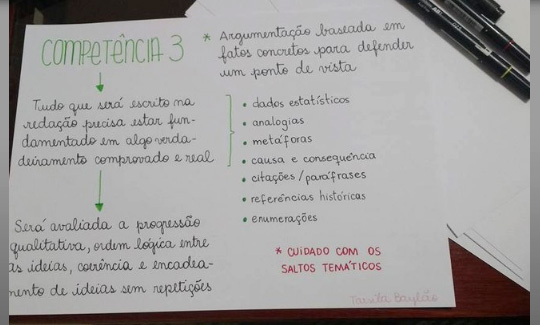 COMPETÊNCIA 3
Tudo que será escrito na
redação precisa estar fun-
damentado em algo verda-
deiramente comprovado e real
Será avaliada a progressão
qualitativa, ordem lógica entre
as ideias, coerência e encadea-
mento de ideias sem repetições
* Argumentação baseada em
fatos concretos para defender
um ponto de vista
• dados estatísticos
• analogias
• metáforas
• causa e consequência
• citações/paráfrases
• referências históricas
• enumerações
* CUIDADO COM OS
SALTOS TEMÁTICOS